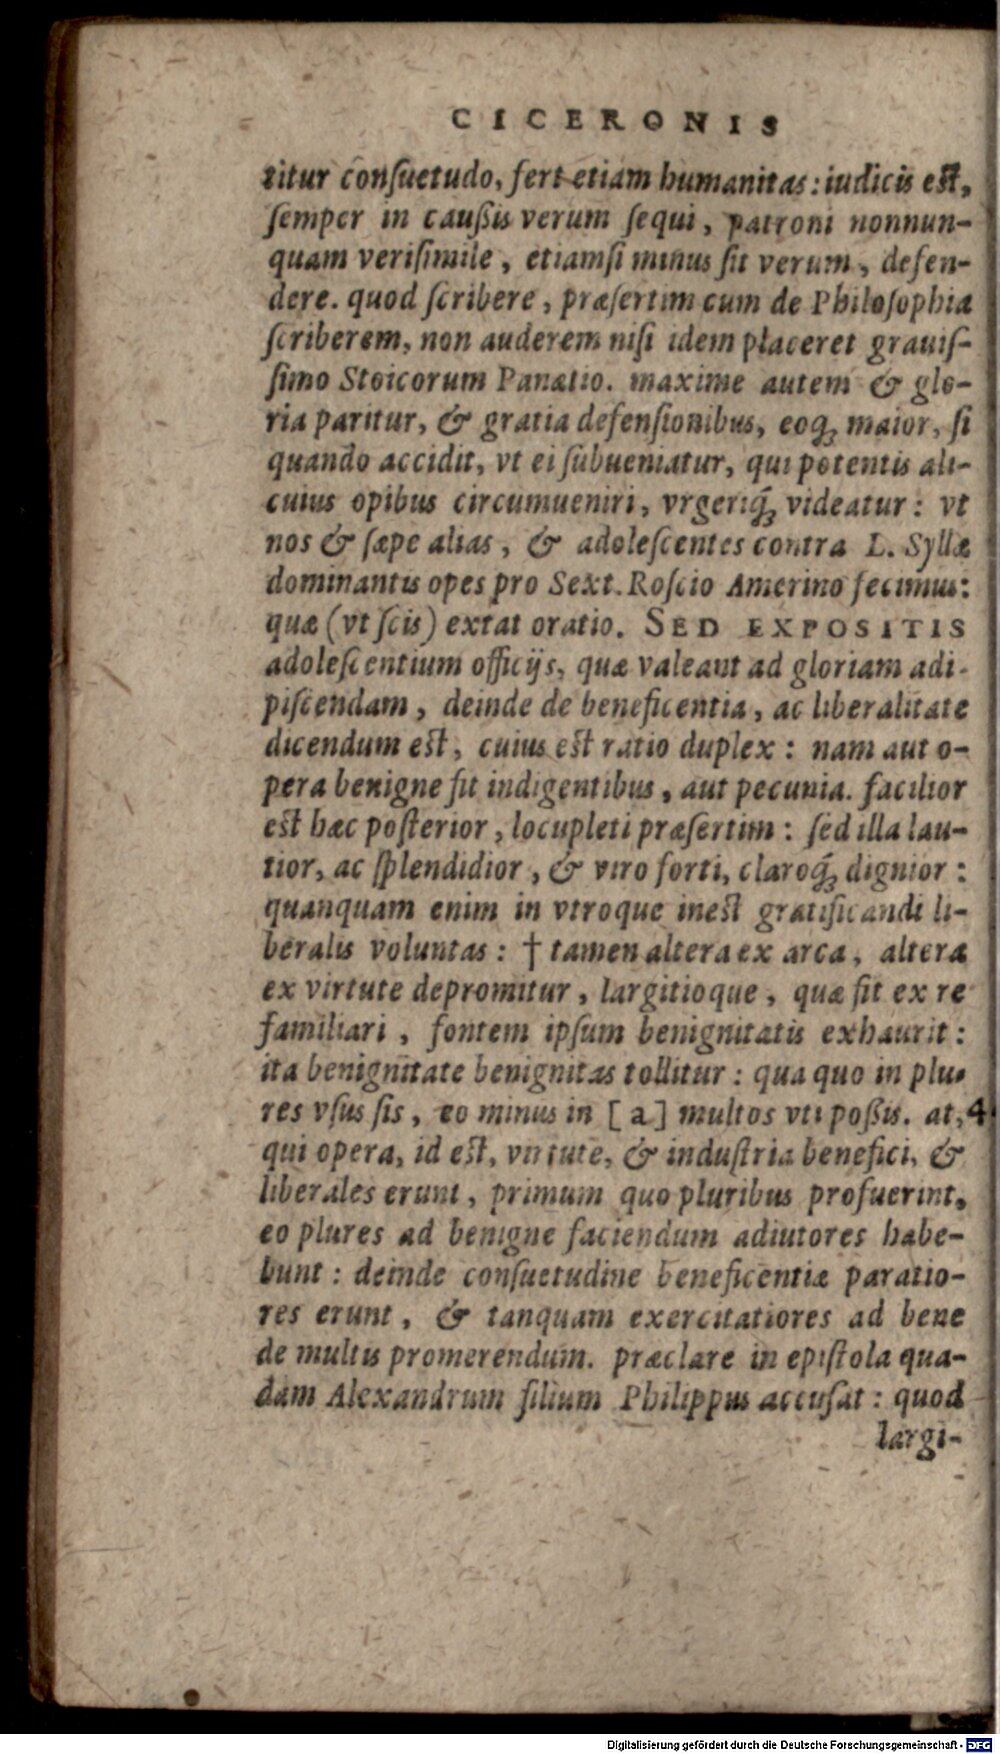 CICERONIS
titur conſuetudo, fert etiam humanitas: iudicis eſt,
ſemper in cauſſis verum ſequi, patroni nonnun-
quam veriſimile, etiamſi minus ſit verum, defen-
dere. quod ſcribere, præſertim cum de Philoſophia
ſcriberem, non auderem niſi idem placeret grauiſ-
ſimo Stoicorum Panætio. maxime autem & glo-
ria paritur, & gratia defenſionibus, eoq́; maior, ſi
quando accidit, vt ei ſubueniatur, qui potentis ali-
cuius opibus circumueniri, vrgeriq́; videatur: vt
nos & ſæpe alias, & adoleſcentes contra L. Syllæ
dominantis opes pro Sext. Roſcio Amerino fecimus:
quæ (vt ſcis) extat oratio. SED EXPOSITIS
adoleſcentium officijs, quæ valeant ad gloriam adi-
piſcendam, deinde de beneficentia, ac liberalitate
dicendum eſt, cuius eſt ratio duplex: nam aut o-
pera benigne fit indigentibus, aut pecunia. facilior
eſt hæc poſterior, locupleti præſertim: ſed illa lau-
tior, ac ſplendidior, & viro forti, claroq́; dignior:
quanquam enim in vtroque ineſt gratificandi li-
beralis voluntas: † tamen altera ex arca, altera
ex virtute depromitur, largitioque, quæ fit ex re
familiari, fontem ipſum benignitatis exhaurit:
ita benignitate benignitas tollitur: qua quo in plu-
res vſus ſis, eo minus in [a] multos vti poſſis. at, 4
qui opera, id eſt, virtute, & induſtria benefici, &
liberales erunt, primum quo pluribus profuerint,
eo plures ad benigne faciendum adiutores habe-
bunt: deinde conſuetudine beneficentiæ paratio-
res erunt, & tanquam exercitatiores ad bene
de multis promerendum. præclare in epiſtola qua-
dam Alexandrum filium Philippus accuſat: quod
largi-
Digitalisierung gefördert durch die Deutsche Forschungsgemeinschaft - DFG